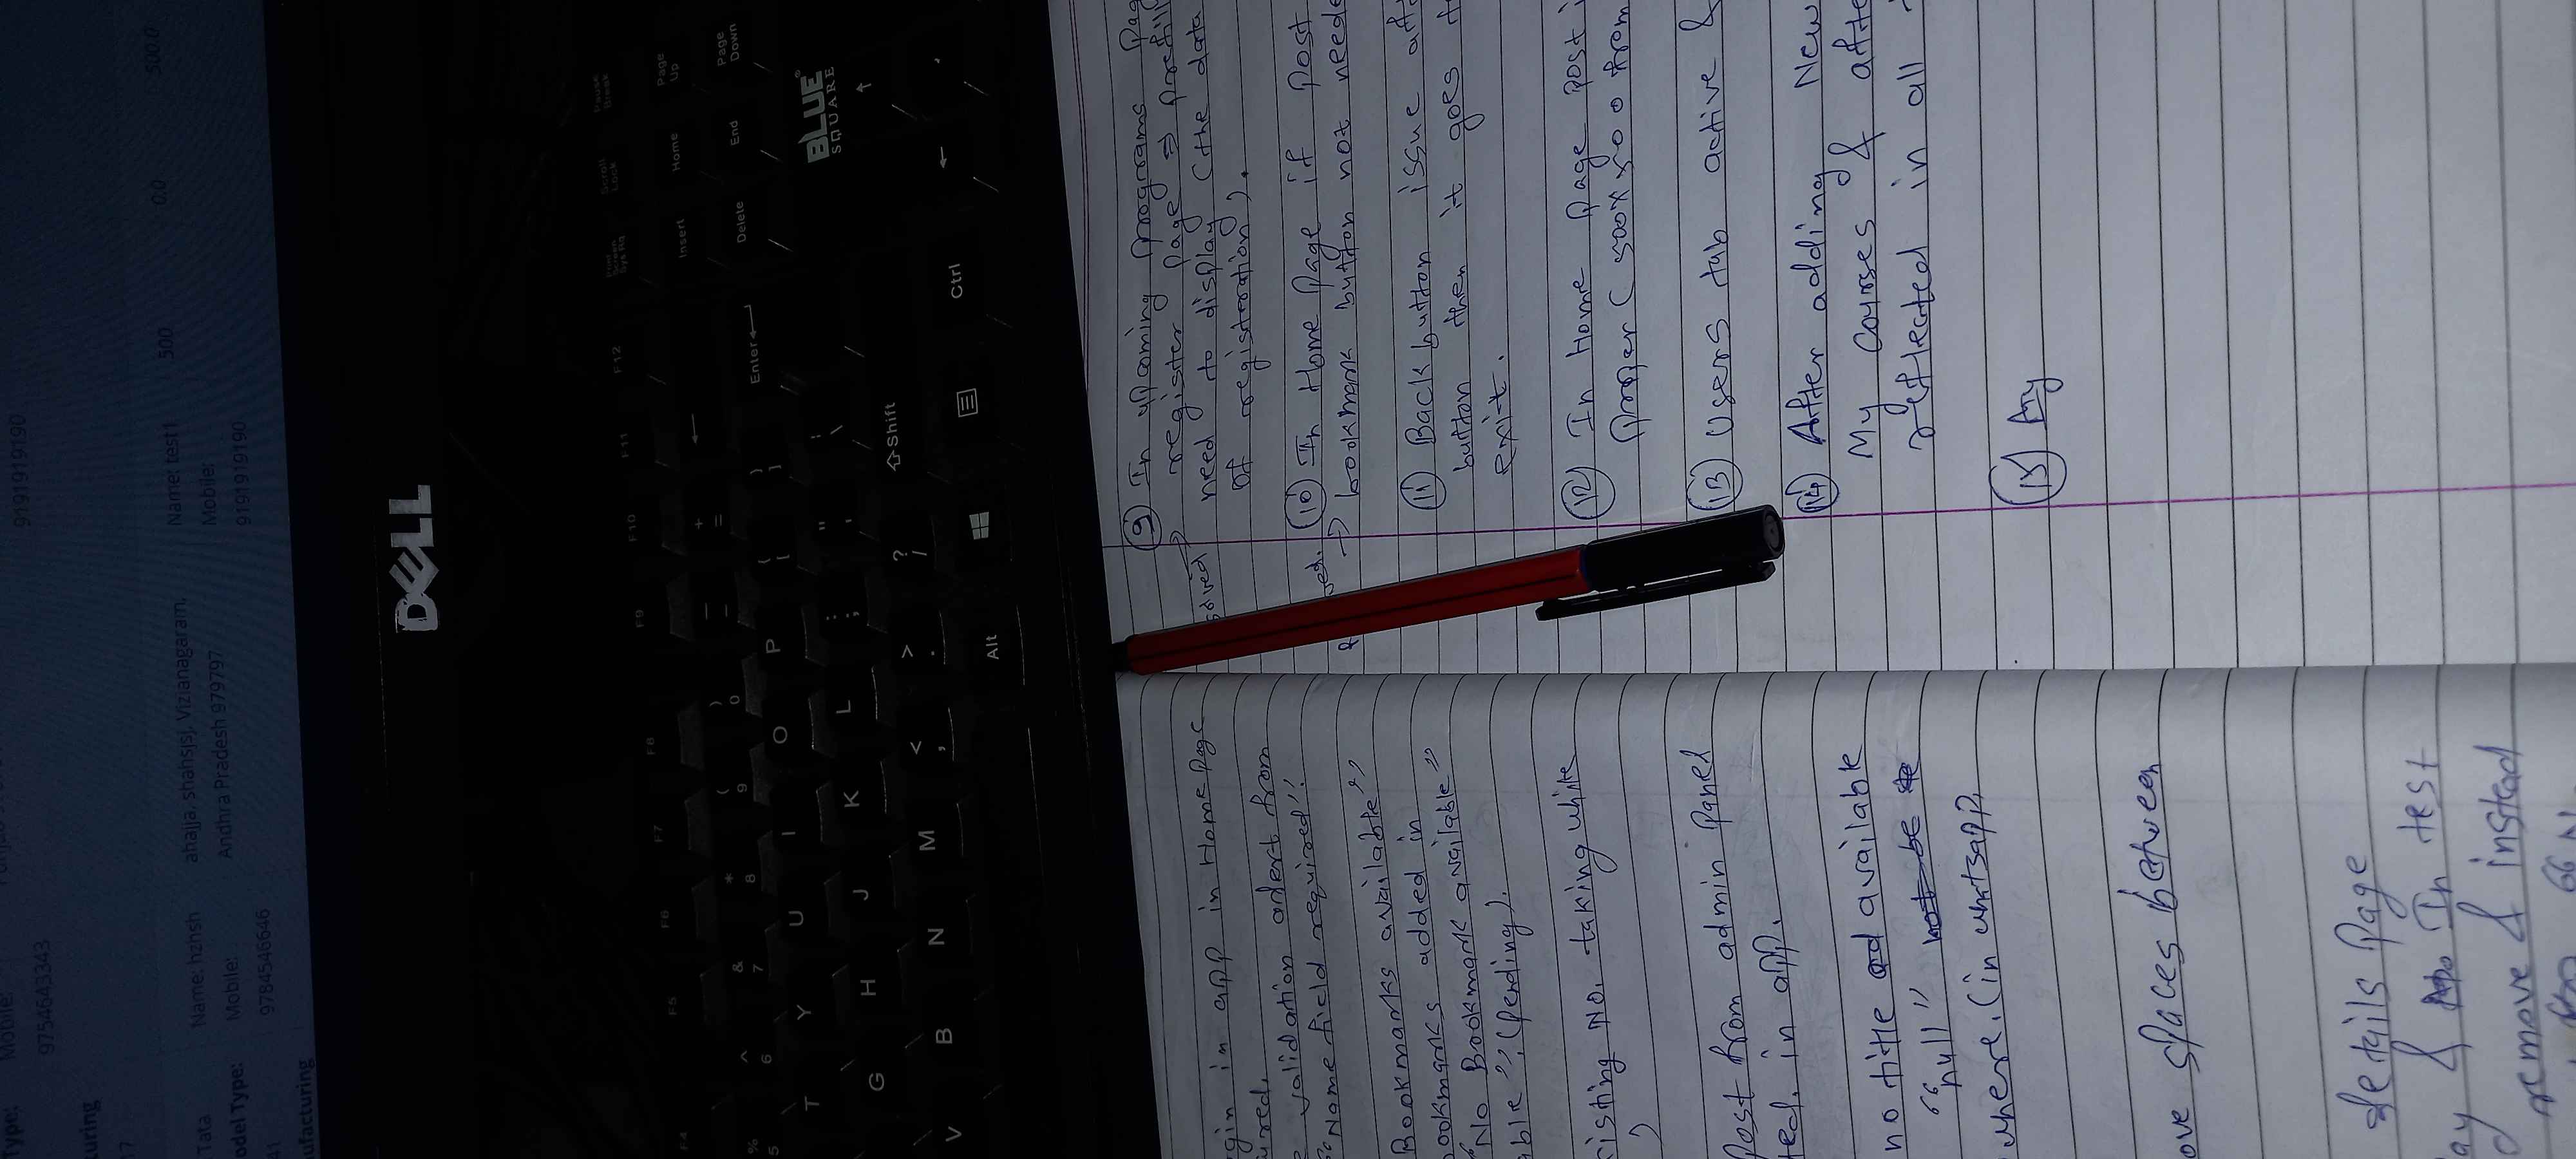 Type:
Mobile:
9191919190
9754643343
turing
17
Tata
Name: hzhsh
ahajja, shahsjsj, Vizianagaram,
Name: test1
500
0.0
500.0
odel Type:
Mobile:
Andhra Pradesh 979797
Mobile:
41
9784546646
9191919190
ufacturing
DELL
F4 F5 F6 F7 F8 F9 F10 F11 F12 Print Screen Sys Rq Scroll Lock Pause Break
% 5 ^ 6 & 7 * 8 ( 9 ) 0 — – + = ← Insert Home Page Up
T Y U I O P { [ } ] Enter Delete End Page Down
G H J K L : ; " ' \
BLUE
SQUARE
V B N M < , > . ? / Shift ↑
Alt Ctrl ←
gin in app in Home Page
ured.
validation adert from
"Name field required"
Bookmarks available"
ookmarks added in
"No Bookmark available"
able" (Pending).
xisting No. taking while
)
Post from admin Panel
ted. in app.
no title ed available
"null" not be
where. (in whatsapp.
ove spaces between
details Page
ay & In test
remove & instead
9 In upcoming programs Pag
register Page ⇒ Prefill
solved need to display (the data
of registeration).
10 In Home Page if Post
ved. → bookmark button not neede
11 Back button issue aft
button then it goes t
exit.
12 In Home Page post i
Proper (500x500 from
13 Users tab active &
14 After adding New
My Courses & afte
reflected in all
15 Any